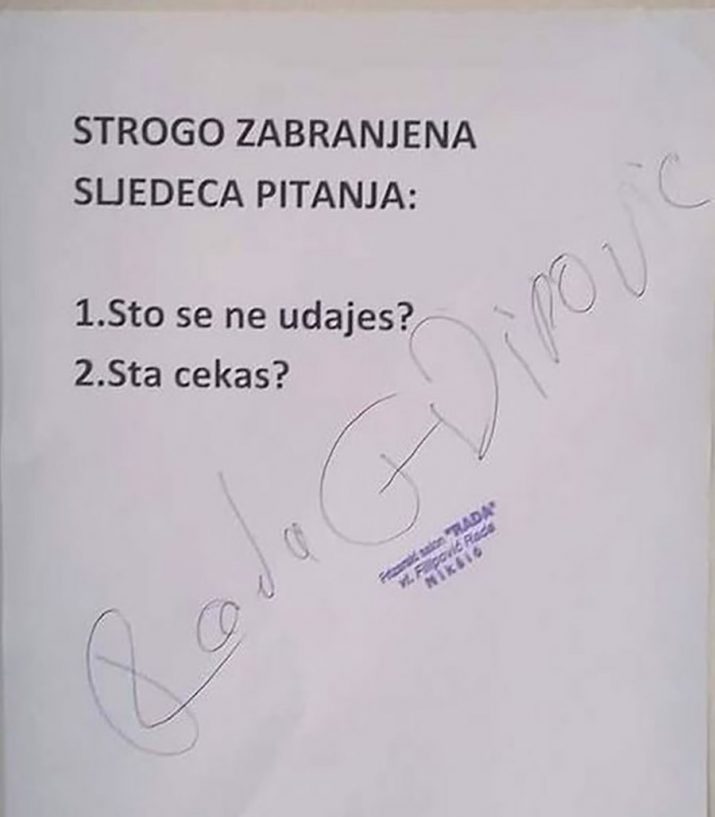 STROGO ZABRANJENA
SLJEDECA PITANJA:
1.Sto se ne udajes?
2.Sta cekas?
Rada Filipovic
Frizerski salon "RADA"
vl. Filipović Rada
Nikšić